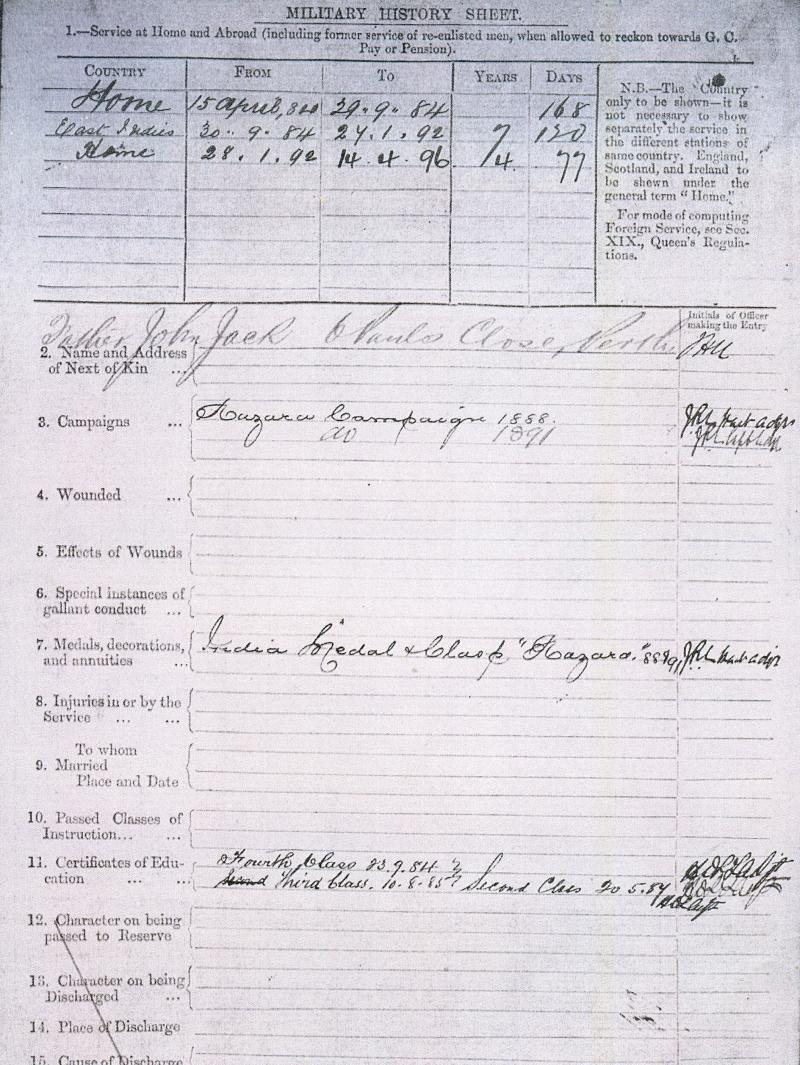 MILITARY HISTORY SHEET.
1.—Service at Home and Abroad (including former service of re-enlisted men, when allowed to reckon towards G. C.
Pay or Pension).
COUNTRY FROM TO YEARS DAYS
Home 15 April, 29.9.84 168
East Indies 30.9.84 27.1.92 7 120
Home 28.1.92 14.4.96 4 77
N.B.—The Country
only to be shown—it is
not necessary to show
separately the service in
the different stations of
same country. England,
Scotland, and Ireland to
be shown under the
general term "Home."
For mode of computing
Foreign Service, see Sec.
XIX., Queen's Regula-
tions.
Initials of Officer
making the Entry
Father John Jack Pauls Close, Perth
2. Name and Address
of Next of Kin ...
3. Campaigns ... Hazara Campaign 1888.
do 1891
4. Wounded ...
5. Effects of Wounds
6. Special instances of
gallant conduct ...
7. Medals, decorations,
and annuities ... India Medal & Clasp "Hazara"
8. Injuries in or by the
Service ... ...
To whom
9. Married
Place and Date
10. Passed Classes of
Instruction... ...
11. Certificates of Edu-
cation ... ... Fourth Class 23.9.84
Third Class. 10.8.85 Second Class 20.5.87
12. Character on being
passed to Reserve
13. Character on being
Discharged ...
14. Place of Discharge
15. Cause of Discharge